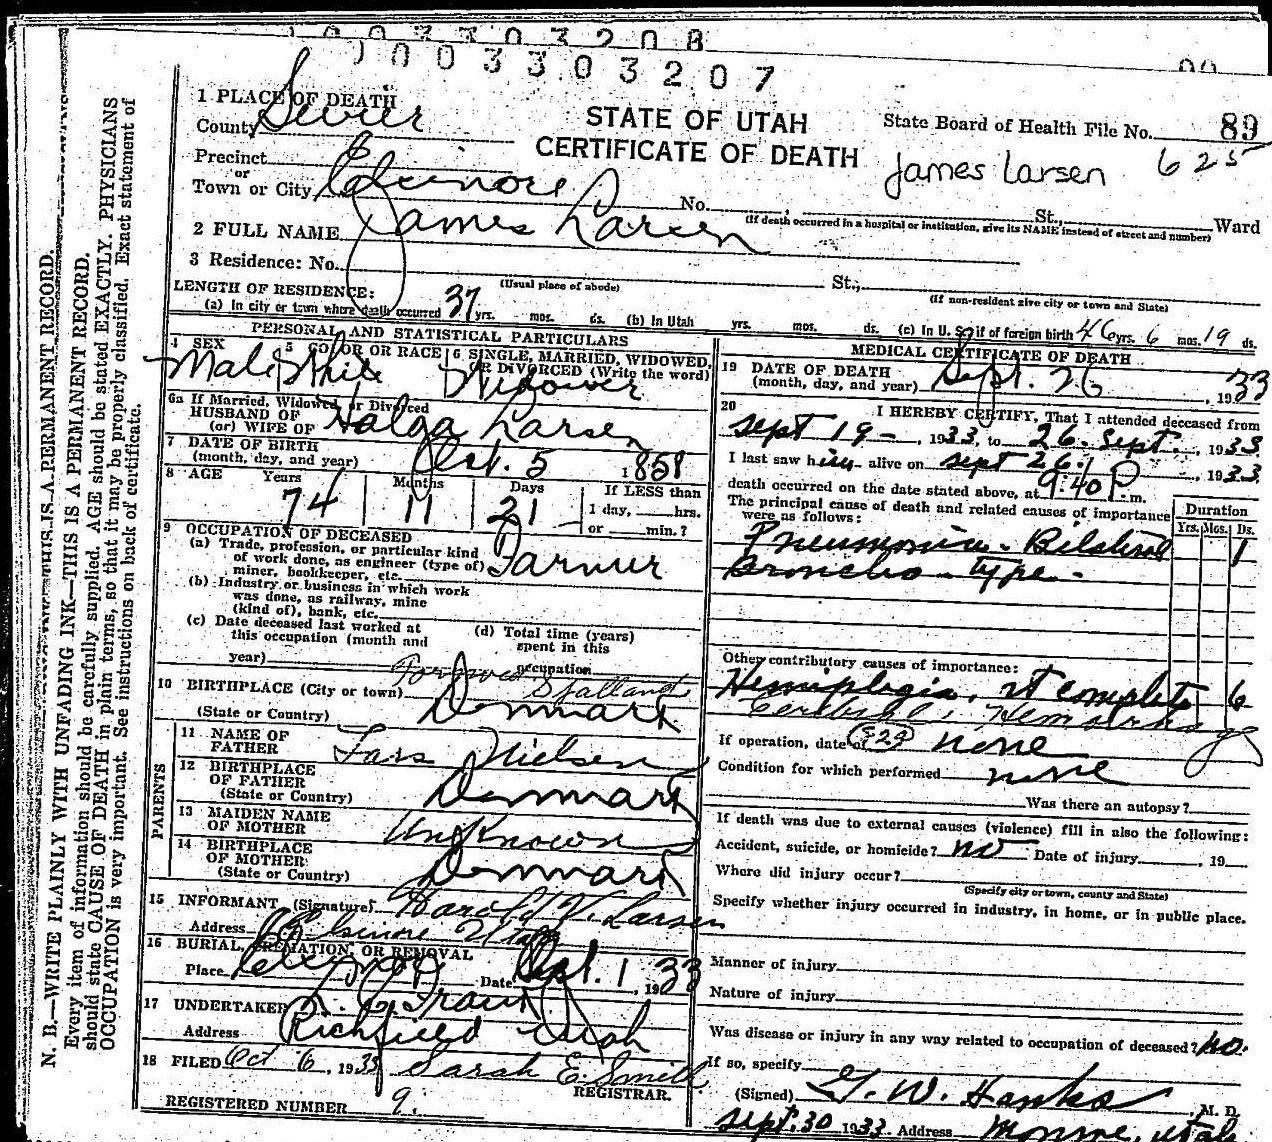 0003303208
0003303207
1 PLACE OF DEATH
County Sevier
STATE OF UTAH
CERTIFICATE OF DEATH
State Board of Health File No. 89
James Larsen 625
Precinct
or
Town or City Elsinore No. , St., Ward
(If death occurred in a hospital or institution, give its NAME instead of street and number)
2 FULL NAME James Larsen
3 Residence: No. St.,
(Usual place of abode) (If non-resident give city or town and State)
LENGTH OF RESIDENCE:
(a) In city or town where death occurred 37 yrs. mos. ds. (b) In Utah yrs. mos. ds. (c) In U. S. if of foreign birth 46 yrs. 6 mos. 19 ds.
PERSONAL AND STATISTICAL PARTICULARS
4 SEX 5 COLOR OR RACE 6 SINGLE, MARRIED, WIDOWED, OR DIVORCED (Write the word)
Male White Widower
6a If Married, Widowed, or Divorced
HUSBAND OF
(or) WIFE OF Halga Larsen
7 DATE OF BIRTH
(month, day, and year) Oct. 5 1858
8 AGE Years Months Days If LESS than
74 11 21 1 day, hrs.
or min.?
9 OCCUPATION OF DECEASED
(a) Trade, profession, or particular kind
of work done, as engineer (type of)
miner, bookkeeper, etc. Farmer
(b) Industry or business in which work
was done, as railway, mine
(kind of), bank, etc.
(c) Date deceased last worked at
this occupation (month and
year)
(d) Total time (years)
spent in this
occupation
10 BIRTHPLACE (City or town)
(State or Country) Denmark
PARENTS
11 NAME OF
FATHER Lars Nielsen
12 BIRTHPLACE
OF FATHER
(State or Country) Denmark
13 MAIDEN NAME
OF MOTHER Unknown
14 BIRTHPLACE
OF MOTHER
(State or Country) Denmark
15 INFORMANT (Signature) Harold V. Larsen
Address Elsinore Utah
16 BURIAL, CREMATION, OR REMOVAL
Place Elsinore Date Oct. 1, 1933
17 UNDERTAKER
Address Richfield Utah
18 FILED Oct 6, 1933 Sarah E. Smith
REGISTRAR.
REGISTERED NUMBER 9.
MEDICAL CERTIFICATE OF DEATH
19 DATE OF DEATH
(month, day, and year) Sept. 26, 1933
20 I HEREBY CERTIFY, That I attended deceased from
Sept 19 -, 1933, to 26. Sept., 1933
I last saw him alive on Sept 26, 1933
death occurred on the date stated above, at 9:40 P. m.
The principal cause of death and related causes of importance
were as follows:
Duration
Yrs. Mos. Ds.
Pneumonia - Bilateral 1
Broncho - type -
Other contributory causes of importance:
Hemiplegia, rt complete 6
If operation, date of none
Condition for which performed none
Was there an autopsy?
If death was due to external causes (violence) fill in also the following:
Accident, suicide, or homicide? no Date of injury , 19
Where did injury occur?
(Specify city or town, county and State)
Specify whether injury occurred in industry, in home, or in public place.
Manner of injury
Nature of injury
Was disease or injury in any way related to occupation of deceased? no.
If so, specify
(Signed) G. W. Hanks, M. D.
Sept. 30 1933 Address Monroe, Utah
N. B.—WRITE PLAINLY WITH UNFADING INK—THIS IS A PERMANENT RECORD.
Every item of information should be carefully supplied. AGE should be stated EXACTLY. PHYSICIANS
should state CAUSE OF DEATH in plain terms, so that it may be properly classified. Exact statement of
OCCUPATION is very important. See instructions on back of certificate.